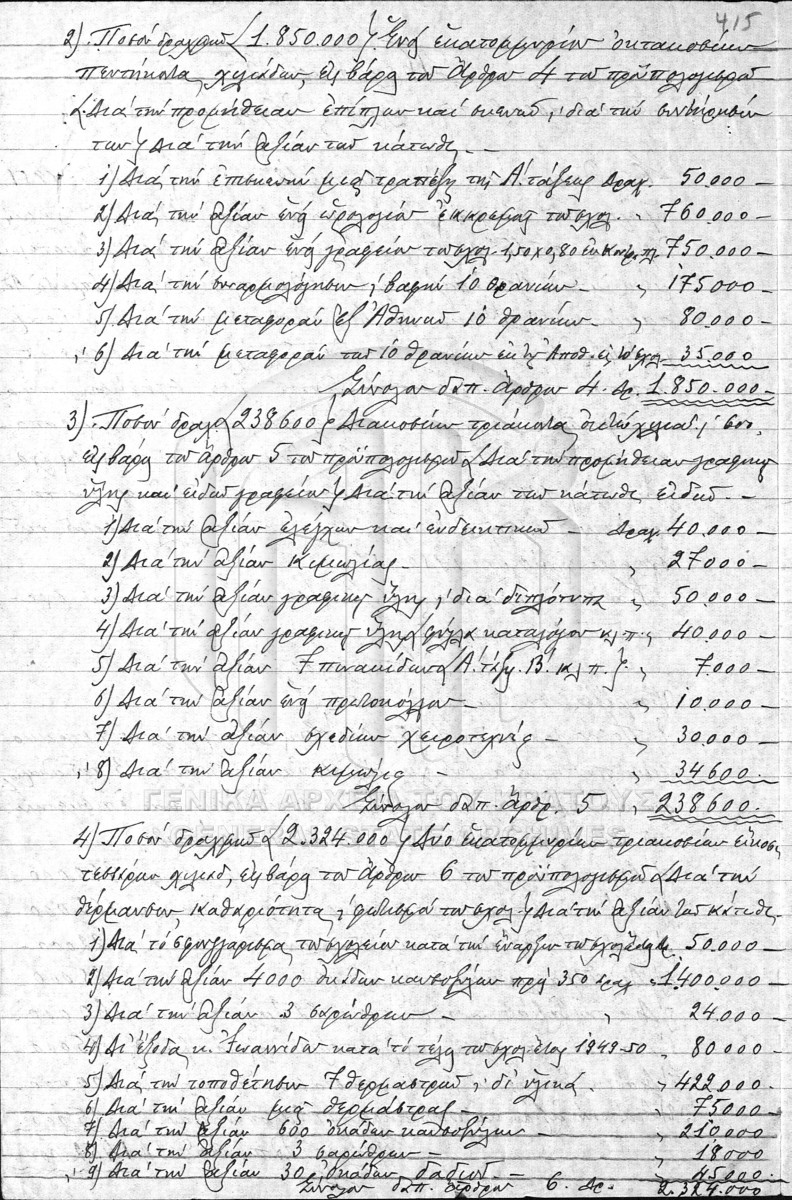 415
2) Ποσόν δραχμῶν (1.850.000) Ἑνός ἑκατομμυρίου ὀκτακοσίων
πεντήκοντα χιλιάδων, εἰς βάρος τοῦ Ἄρθρου 4 τοῦ προϋπολογισμοῦ
(Διά τήν προμήθειαν ἐπίπλων καί σκευῶν, διά τήν συντήρησιν
των) Διά τήν ἀξίαν τῶν κάτωθι. -
1) Διά τήν ἐπισκευήν μιᾶς τραπέζης τῆς Α΄. τάξεως Δραχ. 50.000 -
2) Διά τήν ἀξίαν ἑνός ὡρολογίου ἐκκρεμοῦς τοῦ σχολ. " 760.000 -
3) Διά τήν ἀξίαν ἑνός γραφείου τοῦ σχολ. 1,50 x 0,80 750.000 -
4) Διά τήν συναρμολόγησιν, βαφήν 10 θρανίων - " 175000 -
5) Διά τήν μεταφοράν ἐξ Ἀθηνῶν 10 θρανίων - " 80.000 -
6) Διά τήν μεταφοράν τῶν 10 θρανίων ἐκ τῆς Ἀποθ. εἰς τό σχολ. 35.000
Σύνολον δαπ. Ἄρθρου 4. Δρ. 1.850.000 -
3) Ποσόν δραχ. (238600) Διακοσίων τριάκοντα ὀκτώ χιλιάδ. 600.
εἰς βάρος τοῦ ἄρθρου 5 τοῦ προϋπολογισμοῦ (Διά τήν προμήθειαν γραφικῆς
ὕλης καί εἰδῶν γραφείου) Διά τήν ἀξίαν τῶν κάτωθι εἰδῶν. -
1) Διά τήν ἀξίαν ἐλέγχων καί ἐνδεικτικῶν - Δραχ. 40.000 -
2) Διά τήν ἀξίαν κιμωλίας - " 27000 -
3) Διά τήν ἀξίαν γραφικῆς ὕλης, διά διπλότυπα " 50.000 -
4) Διά τήν ἀξίαν γραφικῆς ὕλης (φύλλα καταλόγου κ.λ.π. " 40.000 -
5) Διά τήν ἀξίαν 7 πινακίδων (Α΄. τάξ. Β΄. κ.λ.π.) " 7.000 -
6) Διά τήν ἀξίαν ἑνός πρωτοκόλλου - " 10.000 -
7) Διά τήν ἀξίαν σχεδίων χειροτεχνίας - " 30.000 -
8) Διά τήν ἀξίαν κιμωλίας - " 34600.
ΓΕΝΙΚΑ ΑΡΧΕΙΑ ΤΟΥ ΚΡΑΤΟΥΣ
Σύνολον δαπ. ἄρθρ. 5 " 238600.
GENERAL STATE ARCHIVES
4) Ποσόν δραχμῶν (2.324.000) Δύο ἑκατομμυρίων τριακοσίων εἴκοσι
τεσσάρων χιλιάδ. εἰς βάρος τοῦ Ἄρθρου 6 τοῦ προϋπολογισμοῦ (Διά τήν
θέρμανσιν, καθαριότητα, φωτισμό τοῦ σχολ.) Διά τήν ἀξίαν τῶν κάτωθι.
1) Διά τό σφουγγάρισμα τοῦ σχολείου κατά τήν ἔναρξιν τοῦ σχολ. ἔτους 50.000 -
2) Διά τήν ἀξίαν 4000 ὀκάδων καυσοξύλων πρός 350 Δραχ. " 1.400.000 -
3) Διά τήν ἀξίαν 3 σαρώθρων - " 24.000 -
4) Δι' ἔξοδα κ. Ἰωαννίδου κατά τό τέλος τοῦ σχολ. ἔτους 1949-50 " 80000 -
5) Διά τήν τοποθέτησιν 7 θερμαστρῶν, δι' ὑλικά. " 422.000.
6) Διά τήν ἀξίαν μιᾶς θερμάστρας - " 75000 -
7) Διά τήν ἀξίαν 600 ὀκάδων καυσοξύλων - " 210000
8) Διά τήν ἀξίαν 3 σαρώθρων - " 18000
9) Διά τήν ἀξίαν 30 ὀκάδων δαδιοῦ - " 45000.
Σύνολον δαπ. ἄρθρου 6. Δρ. 2.324.000